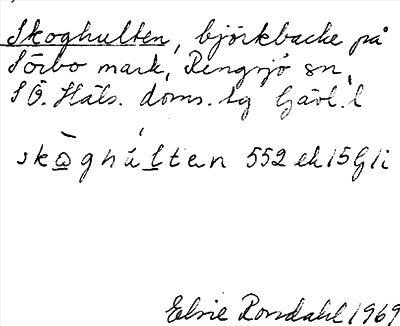 Skoghulten, björkbacke på
Sörbo mark, Rengsjö sn,
S Ö. Häls. doms. tg Gävl. l
skòghúlten 552 ek 15 G 1i
Elsie Rosdahl 1969